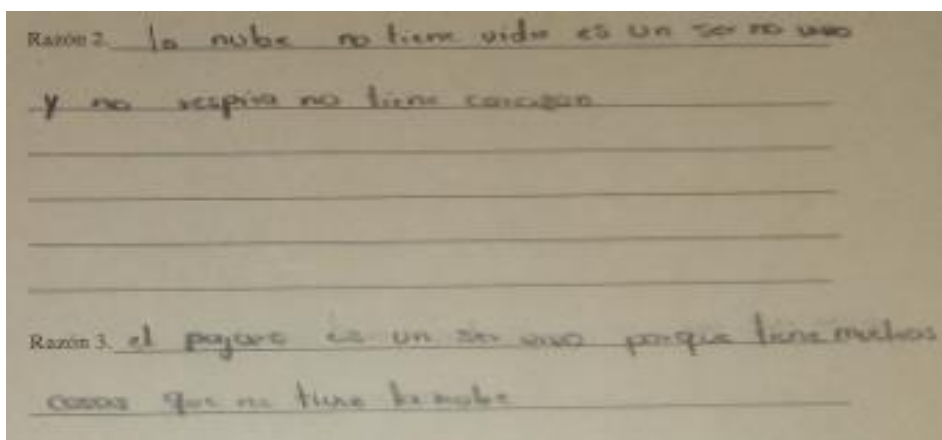 Razón 2. la nube no tiene vida es un ser no vivo
y no respira no tiene corazon
Razón 3. el pajaro es un ser vivo porque tiene muchas
cosas que no tiene la nube